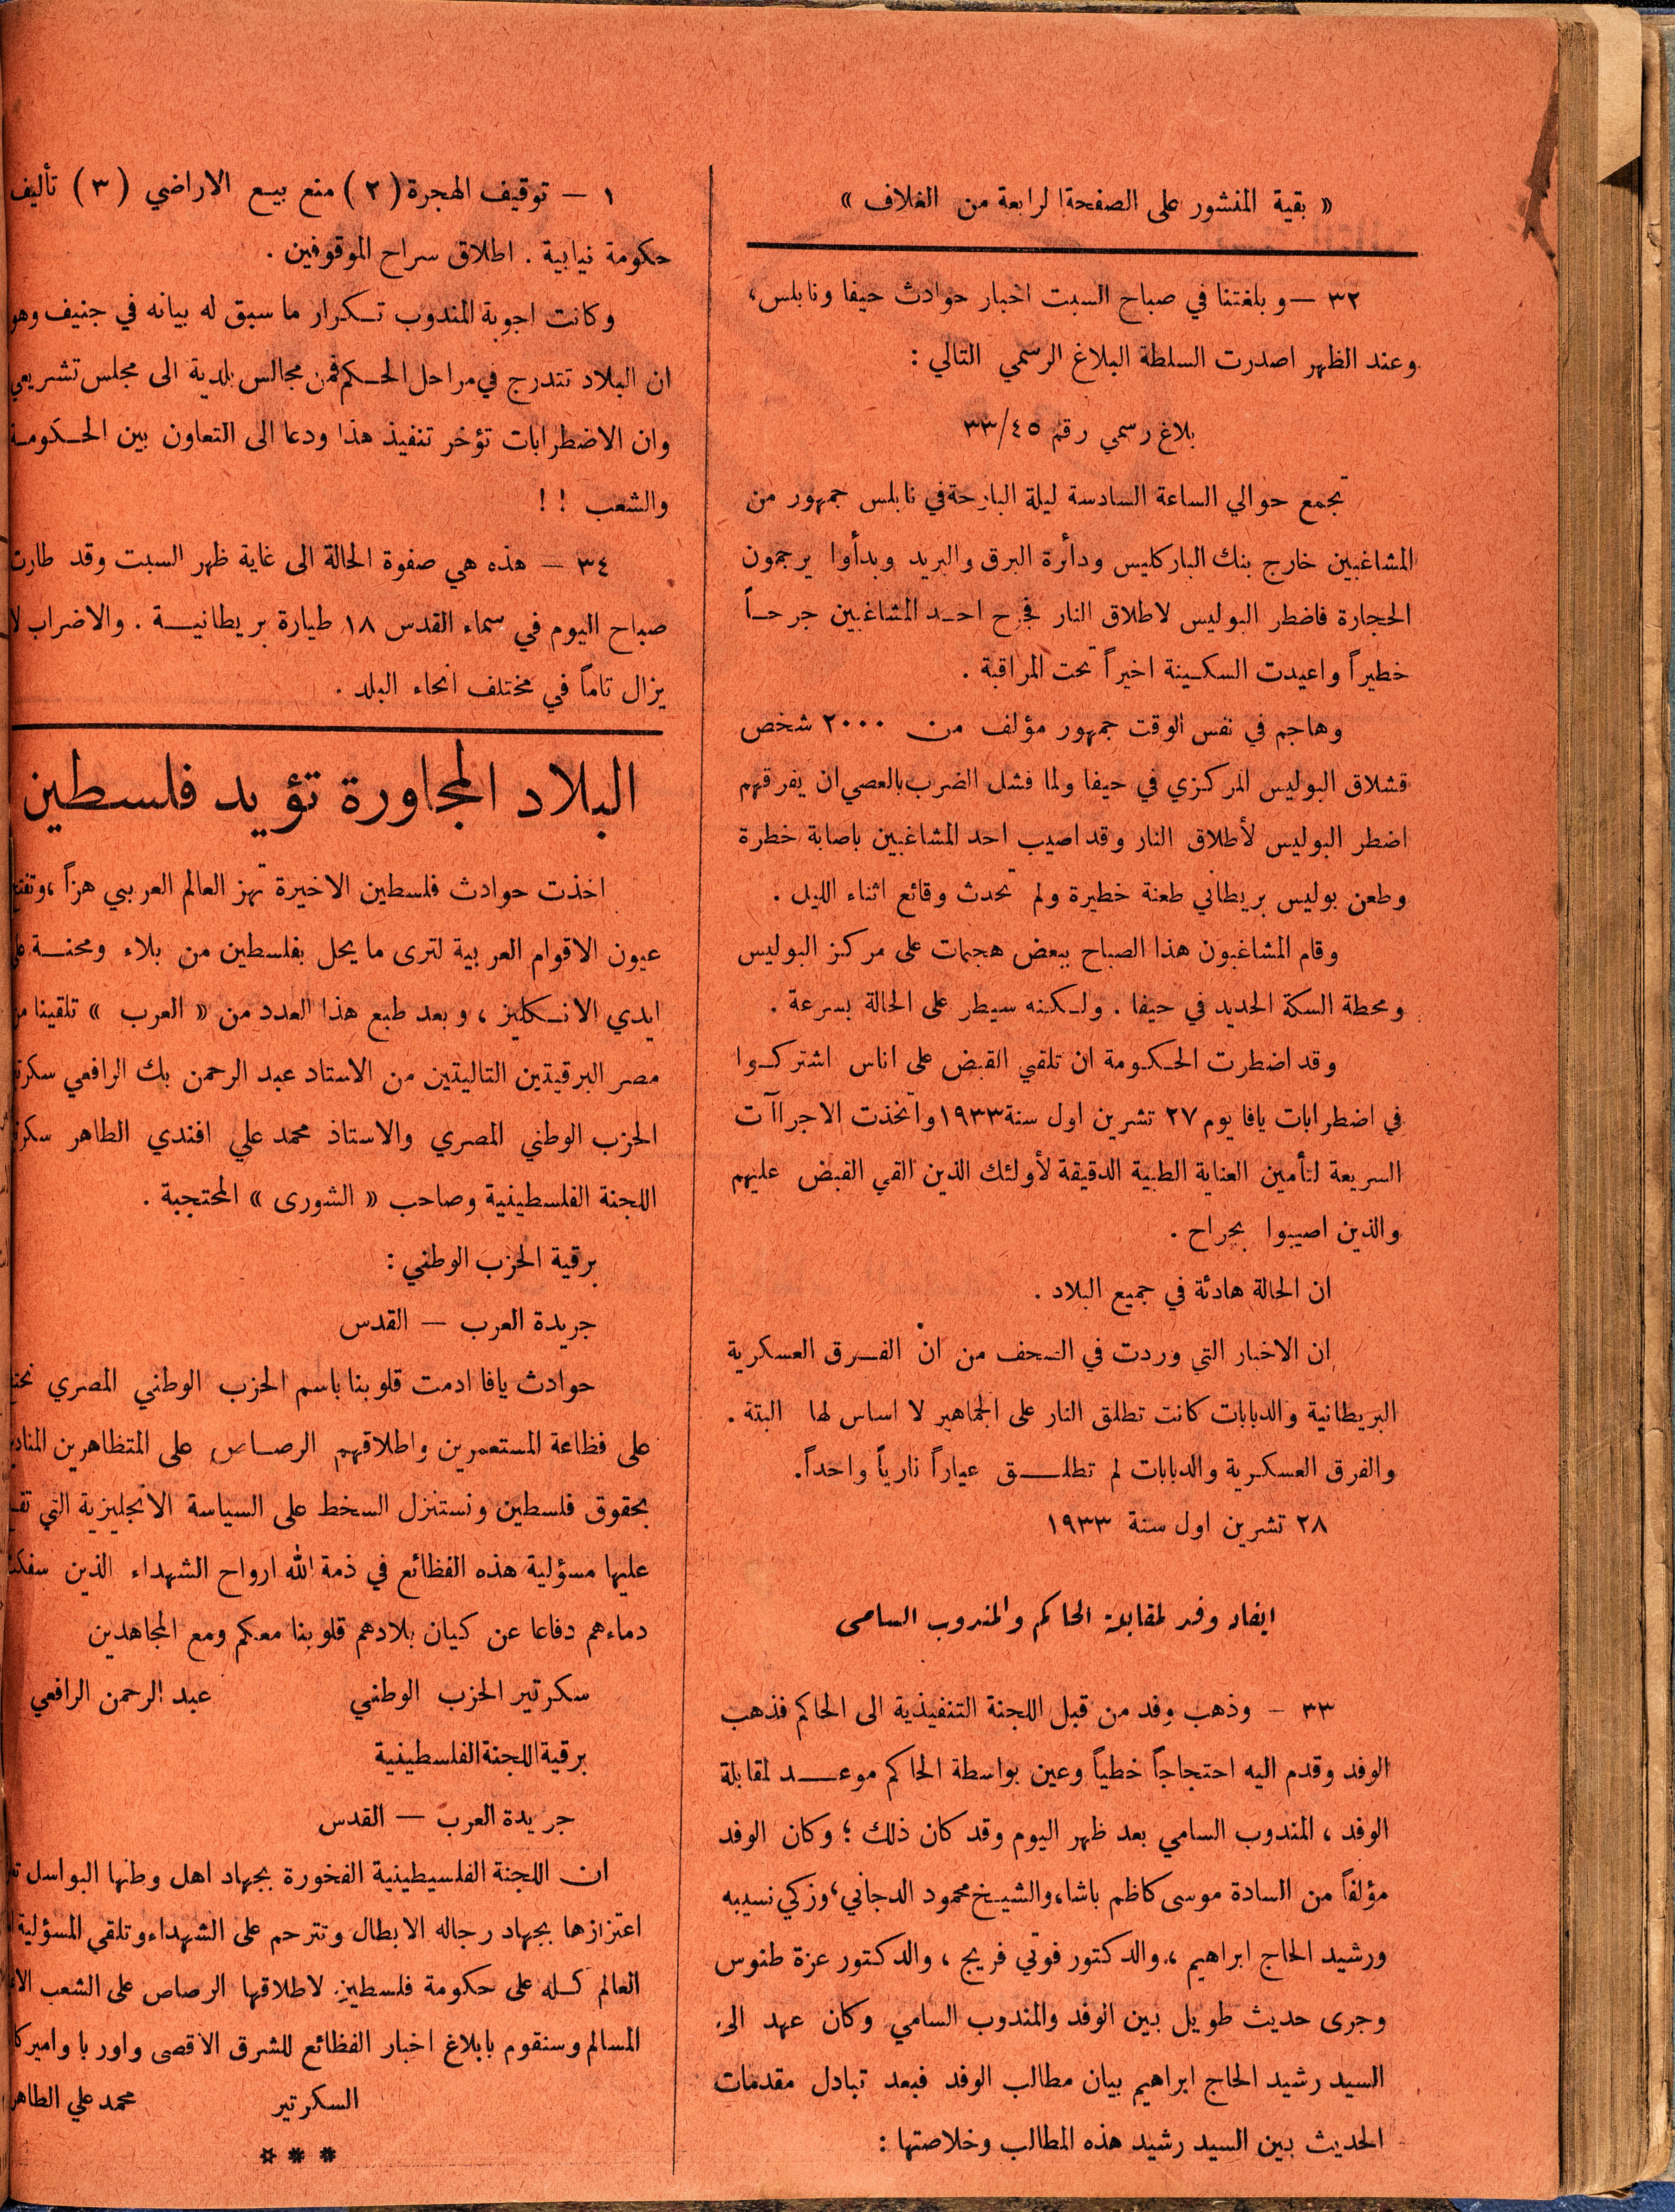 « بقية المنشور على الصفحة الرابعة من الغلاف »
٣٢ — و بلغتنا في صباح السبت اخبار حوادث حيفا ونابلس،
وعند الظهر اصدرت السلطة البلاغ الرسمي التالي :
بلاغ رسمي رقم ٣٣/٤٥
تجمع حوالي الساعة السادسة ليلة البارحة في نابلس جمهور من
المشاغبين خارج بنك الباركليس ودأرة البرق والبريد وبدأوا يرجمون
الحجارة فاضطر البوليس لاطلاق النار فجرح احد المشاغبين جرحاً
خطيراً واعيدت السكينة اخيراً تحت المراقبة .
وهاجم في نفس الوقت جمهور مؤلف من ٢٠٠٠ شخص
قشلاق البوليس المركزي في حيفا ولما فشل الضرب بالعصي ان يفرقهم
اضطر البوليس لأطلاق النار وقد اصيب احد المشاغبين باصابة خطرة
وطعن بوليس بريطاني طعنة خطيرة ولم تحدث وقائع اثناء الليل .
وقام المشاغبون هذا الصباح ببعض هجمات على مركز البوليس
ومحطة السكة الحديد في حيفا . ولكنه سيطر على الحالة بسرعة .
وقد اضطرت الحكومة ان تلقي القبض على اناس اشتركوا
في اضطرابات يافا يوم ٢٧ تشرين اول سنة ١٩٣٣ واتخذت الاجراآت
السريعة لتأمين العناية الطبية الدقيقة لأولئك الذين القي القبض عليهم
والذين اصيبوا بجراح .
ان الحالة هادئة في جميع البلاد .
ان الاخبار التي وردت في الصحف من ان الفرق العسكرية
البريطانية والدبابات كانت تطلق النار على الجماهير لا اساس لها البتة .
والفرق العسكرية والدبابات لم تطلق عياراً نارياً واحداً.
٢٨ تشرين اول سنة ١٩٣٣
ايفاد وفد لمقابلة الحاكم والمندوب السامي
٣٣ – وذهب وفد من قبل اللجنة التنفيذية الى الحاكم فذهب
الوفد وقدم اليه احتجاجاً خطياً وعين بواسطة الحاكم موعد لمقابلة
الوفد ، المندوب السامي بعد ظهر اليوم وقد كان ذلك ؛ وكان الوفد
مؤلفاً من السادة موسى كاظم باشا، والشيخ محمود الدجاني، وزكي نسيبه
ورشيد الحاج ابراهيم ، والدكتور فوتي فريج ، والدكتور عزة طنوس
وجرى حديث طويل بين الوفد والمندوب السامي وكان عهد الى
السيد رشيد الحاج ابراهيم بيان مطالب الوفد فبعد تبادل مقدمات
الحديث بين السيد رشيد هذه المطالب وخلاصتها :
١ — توقيف الهجرة (٢) منع بيع الاراضي (٣) تأليف
حكومة نيابية . اطلاق سراح الموقوفين .
وكانت اجوبة المندوب تكرار ما سبق له بيانه في جنيف وهو
ان البلاد تتدرج في مراحل الحكم فمن مجالس بلدية الى مجلس تشريعي
وان الاضطرابات تؤخر تنفيذ هذا ودعا الى التعاون بين الحكومة
والشعب ! !
٣٤ — هذه هي صفوة الحالة الى غاية ظهر السبت وقد طارت
صباح اليوم في سماء القدس ١٨ طيارة بريطانية . والاضراب لا
يزال تاماً في مختلف انحاء البلد .
البلاد المجاورة تؤيد فلسطين
اخذت حوادث فلسطين الاخيرة تهز العالم العربي هزاً ،
عيون الاقوام العربية لترى ما يحل بفلسطين من بلاء ومحنة على
ايدي الانكليز ، وبعد طبع هذا العدد من « العرب » تلقينا من
مصر البرقيتين التاليتين من الاستاد عبد الرحمن بك الرافعي
الحزب الوطني المصري والاستاذ محمد علي افندي الطاهر
اللجنة الفلسطينية وصاحب « الشورى » المحتجبة .
برقية الحزب الوطني :
جريدة العرب — القدس
حوادث يافا ادمت قلوبنا باسم الحزب الوطني المصري
على فظاعة المستعمرين واطلاقهم الرصاص على المتظاهرين
بحقوق فلسطين ونستنزل السخط على السياسة الانجليزية التي
عليها مسؤلية هذه الفظائع في ذمة الله ارواح الشهداء الذين
دماءهم دفاعا عن كيان بلادهم قلوبنا معكم ومع المجاهدين
سكرتير الحزب الوطني عبد الرحمن الرافعي
برقية اللجنة الفلسطينية
جريدة العرب — القدس
ان اللجنة الفلسيطينية الفخورة بجهاد اهل وطنها البواسل
اعتزازها بجهاد رجاله الابطال وتترحم على الشهداء وتلقي المسؤلية
العالم كله على حكومة فلسطين لاطلاقها الرصاص على الشعب
المسالم وسنقوم بابلاغ اخبار الفظائع للشرق الاقصى واوربا واميركا
السكرتير محمد علي الطاهر
* * *